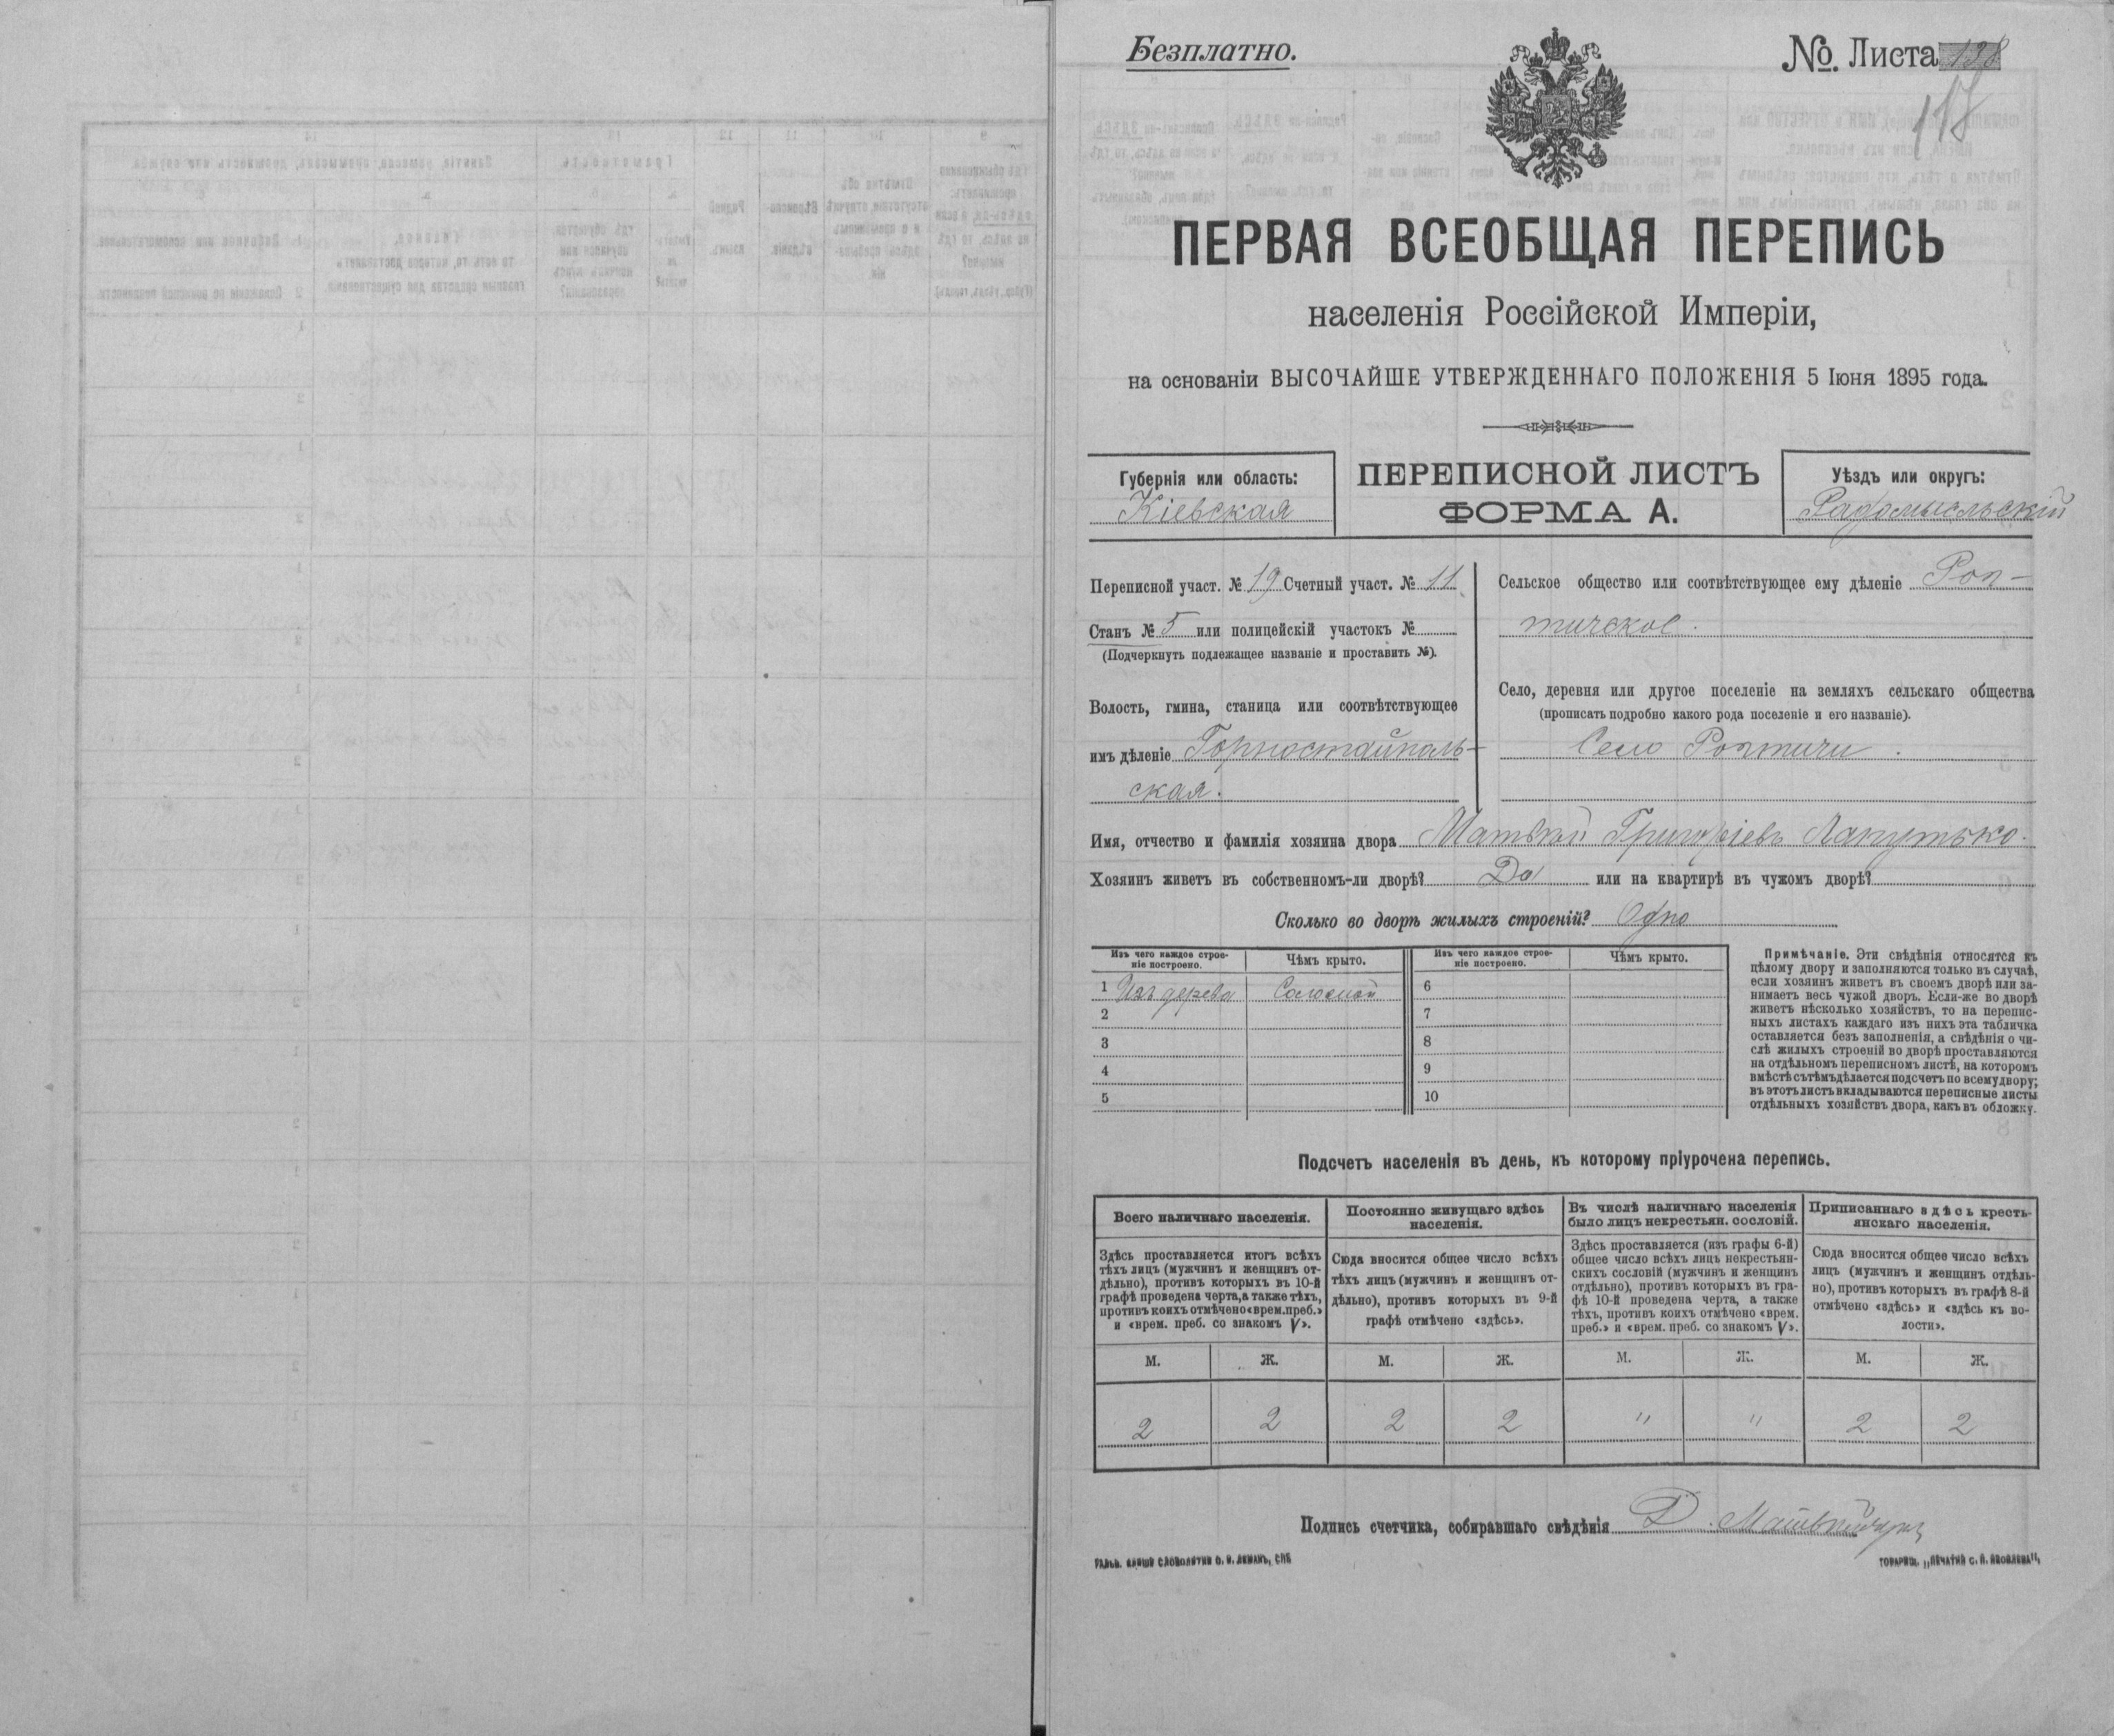 Безплатно.
№. Листа 138
118
ПЕРВАЯ ВСЕОБЩАЯ ПЕРЕПИСЬ
населенія Россійской Имперіи,
на основаніи ВЫСОЧАЙШЕ УТВЕРЖДЕННАГО ПОЛОЖЕНІЯ 5 Іюня 1895 года.
Губернія или область:
Кіевская
ПЕРЕПИСНОЙ ЛИСТЪ
ФОРМА А.
Уѣздъ или округъ:
Радомысльскій
Переписной участ. № 19 Счетный участ. № 11
Станъ № 5 или полицейскій участокъ №
(Подчеркнуть подлежащее названіе и проставить №).
Волость, гмина, станица или соотвѣтствующее
имъ дѣленіе Горностайполь-
ская.
Сельское общество или соотвѣтствующее ему дѣленіе Роп-
тичское.
Село, деревня или другое поселеніе на земляхъ сельскаго общества
(прописать подробно какого рода поселеніе и его названіе).
Село Роптичи.
Имя, отчество и фамилія хозяина двора Матвѣй Григоріевъ Лапутько.
Хозяинъ живетъ въ собственномъ-ли дворѣ? Да или на квартирѣ въ чужомъ дворѣ?
Сколько во дворѣ жилыхъ строеній? Одно
Изъ чего каждое строе-
ніе построено.
Чѣмъ крыто.
Изъ чего каждое строе-
ніе построено.
Чѣмъ крыто.
1 Изъ дерева Соломой 6
2 7
3 8
4 9
5 10
Примѣчаніе. Эти свѣдѣнія относятся къ
цѣлому двору и заполняются только въ случаѣ,
если хозяинъ живетъ въ своемъ дворѣ или за-
нимаетъ весь чужой дворъ. Если-же во дворѣ
живетъ нѣсколько хозяйствъ, то на перепис-
ныхъ листахъ каждаго изъ нихъ эта табличка
оставляется безъ заполненія, а свѣдѣнія о чи-
слѣ жилыхъ строеній во дворѣ проставляются
на отдѣльномъ переписномъ листѣ, на которомъ
вмѣстѣ съ тѣмъ дѣлается подсчетъ по всему двору;
въ этотъ листъ вкладываются переписные листы
отдѣльныхъ хозяйствъ двора, какъ въ обложку.
Подсчетъ населенія въ день, къ которому пріурочена перепись.
Всего наличнаго населенія.
Здѣсь проставляется итогъ всѣхъ
тѣхъ лицъ (мужчинъ и женщинъ от-
дѣльно), противъ которыхъ въ 10-й
графѣ проведена черта, а также тѣхъ,
противъ коихъ отмѣчено «врем. преб.»
и «врем. преб. со знакомъ V».
Постоянно живущаго здѣсь
населенія.
Сюда вносится общее число всѣхъ
тѣхъ лицъ (мужчинъ и женщинъ от-
дѣльно), противъ которыхъ въ 9-й
графѣ отмѣчено «здѣсь».
Въ числѣ наличнаго населенія
было лицъ некрестьян. сословій.
Здѣсь проставляется (изъ графы 6-й)
общее число всѣхъ лицъ некрестьян-
скихъ сословій (мужчинъ и женщинъ
отдѣльно), противъ которыхъ въ гра-
фѣ 10-й проведена черта, а также
тѣхъ, противъ коихъ отмѣчено «врем.
преб.» и «врем. преб. со знакомъ V».
Приписаннаго здѣсь кресть-
янскаго населенія.
Сюда вносится общее число всѣхъ
лицъ (мужчинъ и женщинъ отдѣль-
но), противъ которыхъ въ графѣ 8-й
отмѣчено «здѣсь» и «здѣсь къ во-
лости».
М. Ж. М. Ж. М. Ж. М. Ж.
2 2 2 2 " " 2 2
Подпись счетчика, собиравшаго свѣдѣнія Д.
ГАЛЬВ. КЛИШЕ СЛОВОЛИТНИ О. И. ЛЕМАНЪ, СПБ
ТОВАРИЩ. „ПЕЧАТНЯ С. П. ЯКОВЛЕВА",